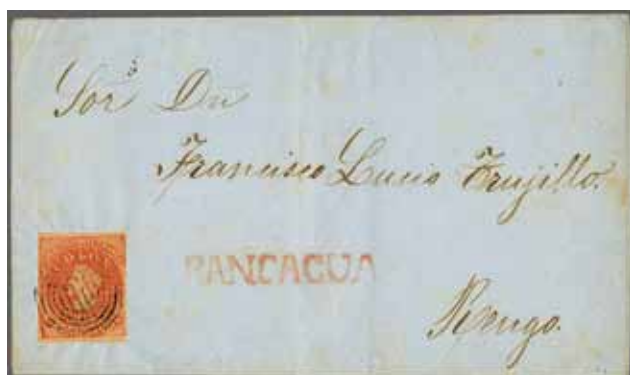 Sor Dn
Francisco Lucio Trujillo.
RANCAGUA
Rengo.